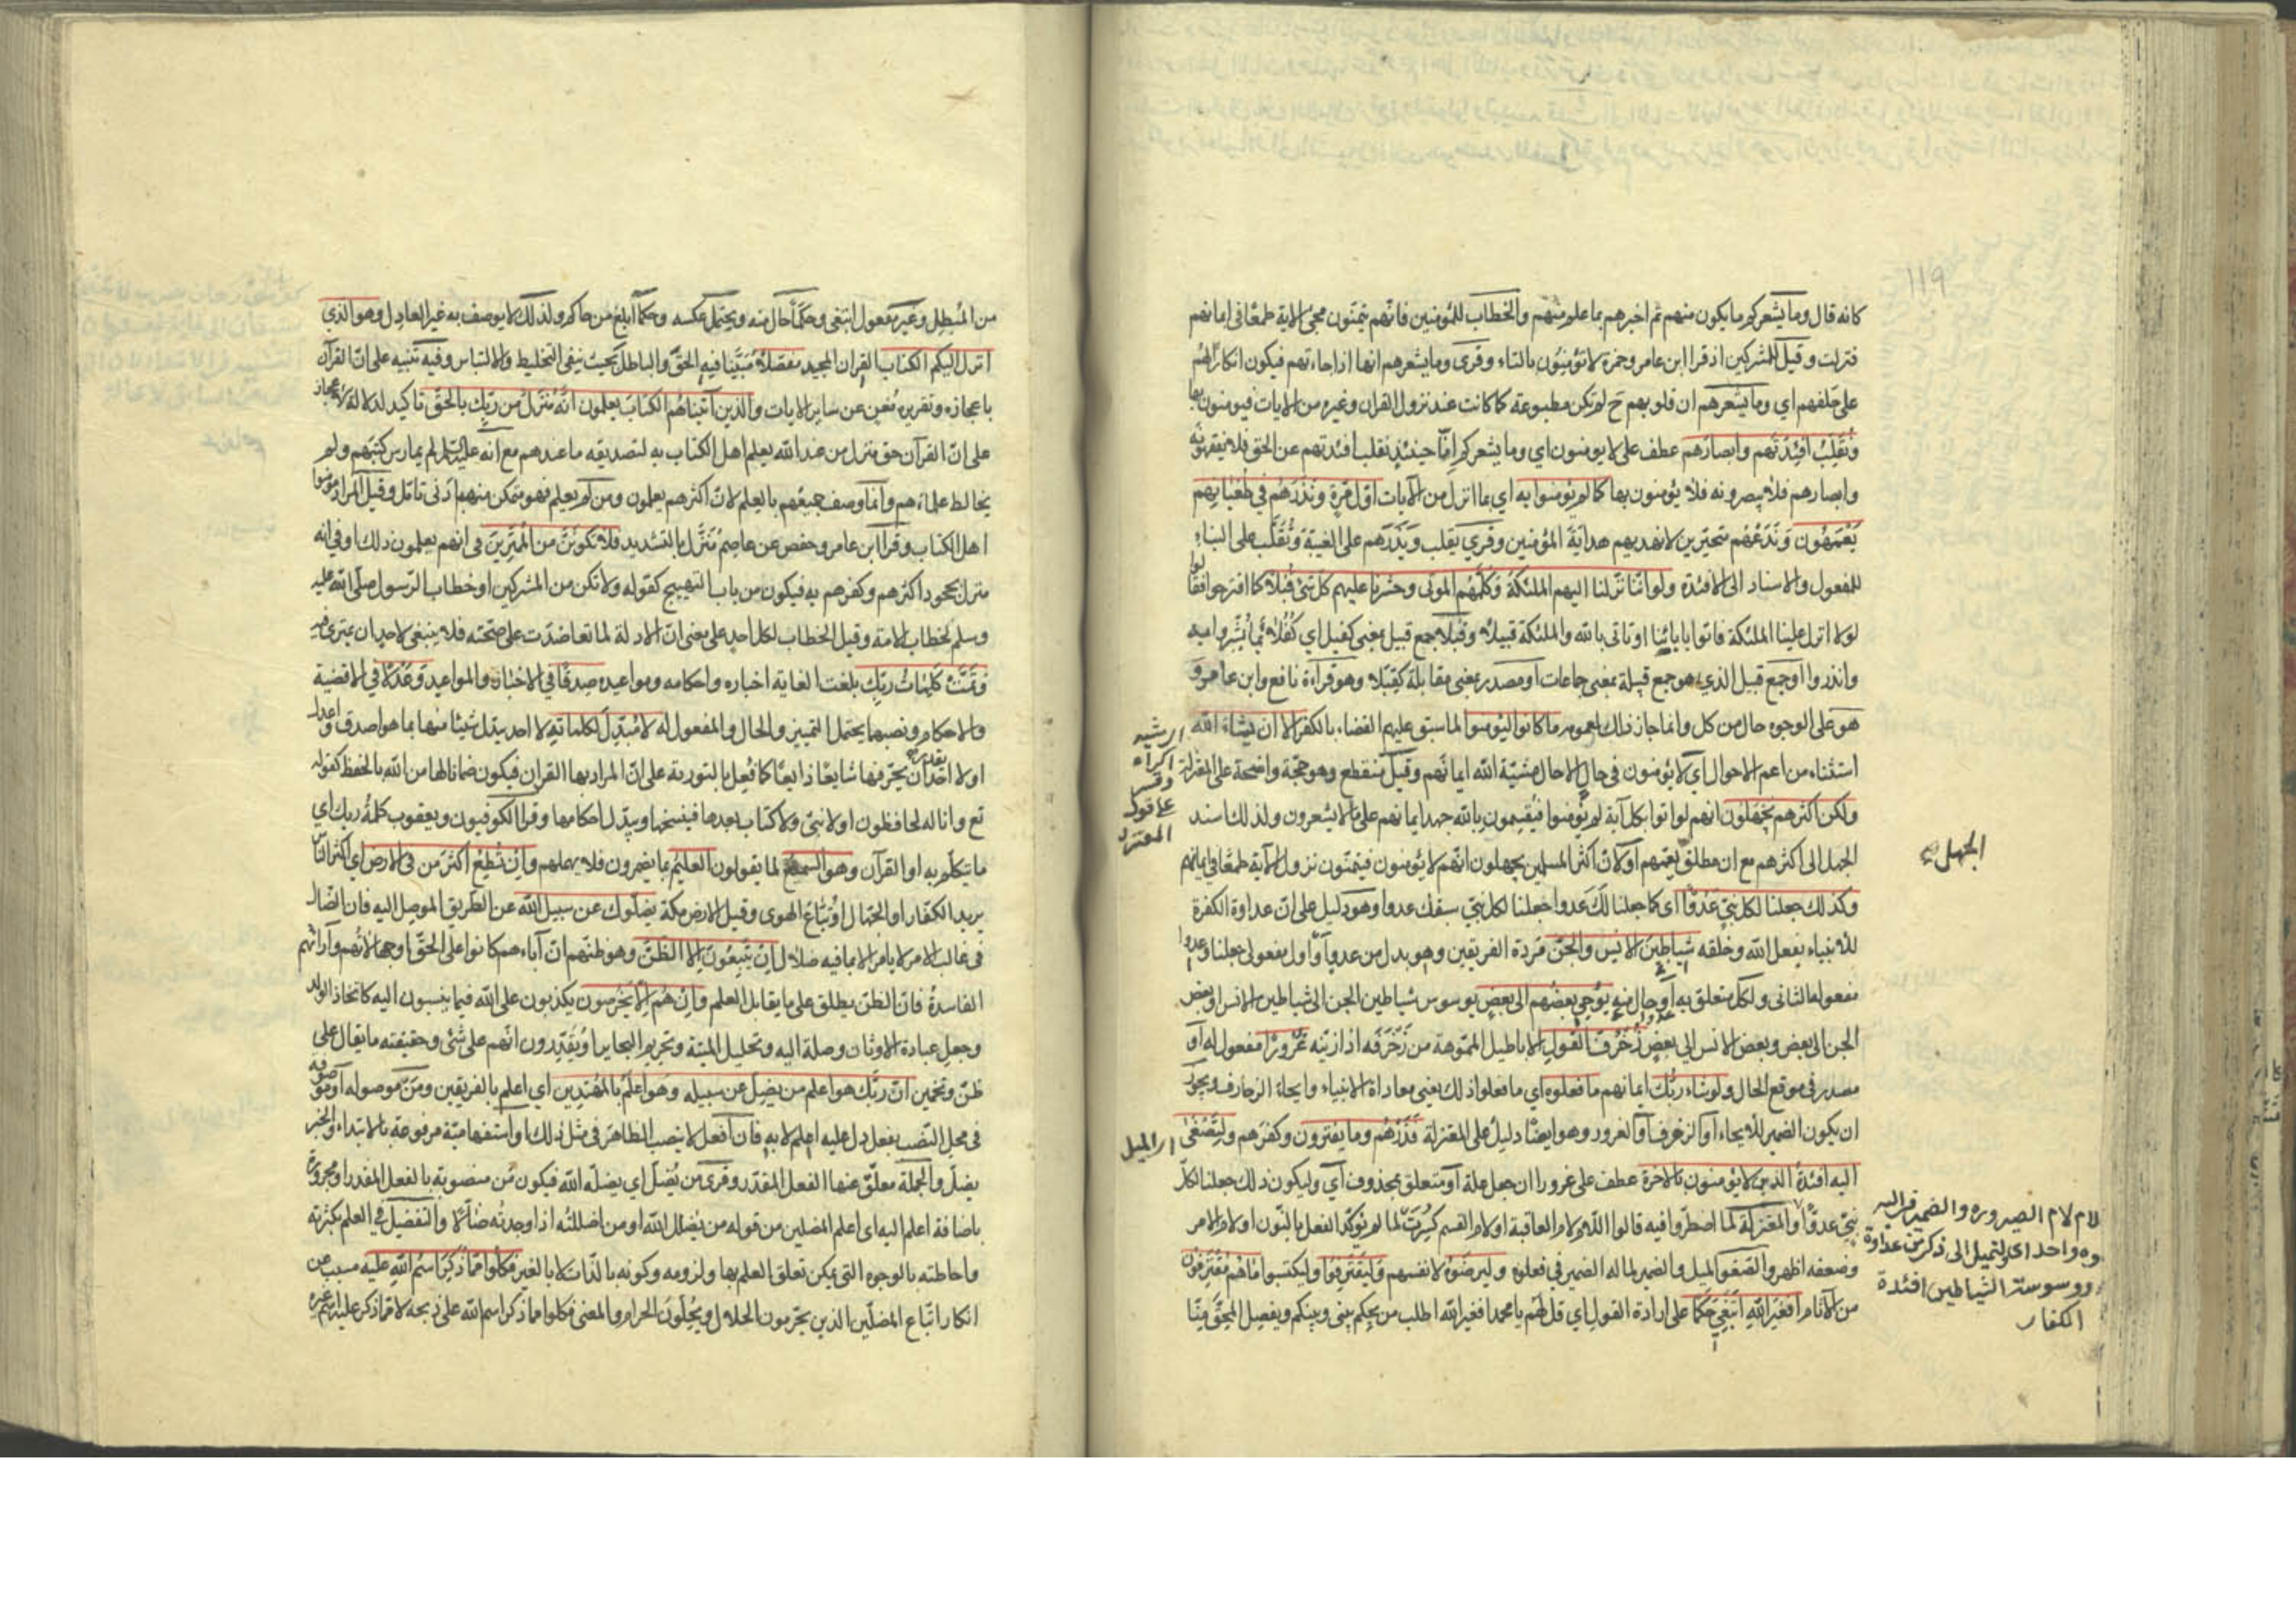 119
كانه قال وما يشعركم ما يكون منهم ثم اخبرهم بما علم منهم والخطاب للمؤمنين فانهم يتمنون مجئ الاية طمعا في ايمانهم
فنزلت وقيل للمشركين اذ قرا ابن عامر وحمزة لا تؤمنون بالتاء وقرى وما يشعرهم انها اذا جاءتهم فيكون انكارا لهم
على حلفهم اي وما يشعرهم ان قلوبهم ح لم تكن مطبوعة كما كانت عند نزول القران وغيره من الايات فيومنون بها
ونقلب افئدتهم وابصارهم عطف على لا يومنون اي وما يشعركم انا حينئذ نقلب افئدتهم عن الحق فلا يفقهونه
وابصارهم فلا يبصرونه فلا يؤمنون بها كما لم يؤمنوا به اي بما انزل من الآيات اول مرة ونذرهم في طغيانهم
يعمهون وندعهم متحيرين لا نهديهم هداية المؤمنين وقرئ يقلب ويذرهم على الغيبة وتقلب على البناء
للمفعول والاسناد الى الافئدة ولو اننا نزلنا اليهم الملئكة وكلمهم الموتى وحشرنا عليهم كل شئ قبلا كما اقترحوا فقالوا
لولا انزل علينا الملئكة فاتوا بابائنا او تاتى بالله والملئكة قبيلا وقبلا جمع قبيل بمعنى كفيل اي كفلاء بما بشروا به
وانذروا او جمع قبيل الذي هو جمع قبيلة بمعنى جماعات او مصدر بمعنى مقابلة كقبلا وهو قراءة نافع وابن عامر و
هو على الوجوه حال من كل وانما جاز ذلك لعمومه ما كانوا ليؤمنوا لما سبق عليهم القضاء بالكفر الا ان يشاء الله
استثناء من اعم الاحوال اي لا يؤمنون في حال الا حال مشية الله ايمانهم وقيل منقطع وهو حجة واضحة على المعتزلة
ولكن اكثرهم يجهلون انهم لو اتوا بكل آية لم يؤمنوا فيقسمون بالله جهد ايمانهم على ما لا يشعرون ولذلك اسند
الجهل الى اكثرهم مع ان مطلق يعمهم او لان اكثر المسلمين يجهلون انهم لا يؤمنون فيتمنون نزول الآية طمعا في ايمانهم
وكذلك جعلنا لكل نبي عدوا اى كما جعلنا لك عدوا جعلنا لكل نبي سبقك عدوا وهو دليل على ان عداوة الكفرة
للانبياء بفعل الله وخلقه شياطين الانس والجن مردة الفريقين وهو بدل من عدوا او اول مفعولى جعلنا وعدوا
مفعوله الثانى ولكل متعلق به او حال منه يوحي بعضهم الى بعض يوسوس شياطين الجن الى شياطين الانس او بعض
الجن الى بعض وبعض الانس الى بعض زخرف القول الاباطيل المموهة من زخرفه اذا زينه غرورا مفعول له او
مصدر في موقع الحال ولو شاء ربك ايمانهم ما فعلوه اي ما فعلوا ذلك يعني معاداة الانبياء وايحاء الزخارف ويجوز
ان يكون الضمير للايحاء او الزخرف او الغرور وهو ايضا دليل على المعتزلة فذرهم وما يفترون وكفرهم ولتصغى
اليه افئدة الذين لا يؤمنون بالاخرة عطف على غرورا ان جعل علة او متعلق بمحذوف اي وليكون ذلك جعلنا لكل
نبي عدوا والمعتزلة لما اضطروا فيه قالوا اللام لام العاقبة او لام القسم كسرت لما لم يؤكد الفعل بالنون او لام الامر
وضعفه اظهر والصغو الميل والضمير لما له الضمير في فعلوه وليرضوه لانفسهم وليقترفوا وليكتسبوا ما هم مقترفون
من الآثام افغير الله ابتغي حكما على ارادة القول اي قل لهم يا محمد افغير الله اطلب من يحكم بينى وبينكم ويفصل المحق منا
الجهل
اى الميل
لام لام الصيرورة والضمير في اليه
ووسوسة الشياطين افئدة
الكفار
من المبطل وغير مفعول ابتغى وحكما حال منه ويحتمل عكسه وحكما ابلغ من حاكم ولذلك لا يوصف به غير العادل وهو الذي
انزل اليكم الكتاب القران المجيد مفصلا مبينا فيه الحق والباطل بحيث ينفى التخليط والالتباس وفيه تنبيه على ان القرآن
باعجازه وتقريره مغن عن ساير الايات والذين آتيناهم الكتاب يعلمون انه منزل من ربك بالحق تاكيد لدلالة الاعجاز
على ان القرآن حق منزل من عند الله يعلم اهل الكتاب به لتصديقه ما عندهم مع انه عليه السلام لم يمارس كتبهم ولم
يخالط علماءهم وانما وصف جميعهم بالعلم لان اكثرهم يعلمون ومن لم يعلم فهو متمكن منه بادنى تامل وقيل المراد مؤمنوا
اهل الكتاب وقرا ابن عامر وحفص عن عاصم منزل بالتشديد فلا تكونن من الممترين في انهم يعلمون ذلك او في انه
منزل بجحود اكثرهم وكفرهم به فيكون من باب التهييج كقوله ولا تكن من المشركين او خطاب الرسول صلى الله عليه
وسلم لخطاب الامة وقيل الخطاب لكل احد على معنى ان الادلة لما تعاضدت على صحته فلا ينبغى لاحد ان يمترى فيه
وتمت كلمات ربك بلغت الغاية اخباره واحكامه ومواعيده صدقا في الاخبار والمواعيد وعدلا في الاقضية
والاحكام ونصبهما يحتمل التمييز والحال والمفعول له لا مبدل لكلماته لا احد يبدل شيئا منها بما هو اصدق واعدل
او لا احد يقدر ان يحرفها شايعا ذايعا كما فعل بالتورية على ان المراد بها القران فيكون ضمانا لها من الله بالحفظ كقوله
تع وانا له لحافظون او لا نبى ولا كتاب بعدها فينسخها ويبدل احكامها وقرا الكوفيون ويعقوب كلمة ربك اي
ما تكلم به او القرآن وهو السميع لما يقولون العليم بما يضمرون فلا يهملهم وان تطع اكثر من في الارض اي اكثر الناس
يريد الكفار او الجهال او اتباع الهوى وقيل الارض مكة يضلوك عن سبيل الله عن الطريق الموصل اليه فان الضال
في غالب الامر لا يامر الا بما فيه ضلال ان يتبعون الا الظن وهو ظنهم ان آباءهم كانوا على الحق او جهالاتهم وآرائهم
الفاسدة فان الظن يطلق على ما يقابل العلم وان هم الا يخرصون يكذبون على الله فيما ينسبون اليه كاتخاذ الولد
وجعل عبادة الاوثان وصلة اليه وتحليل الميتة وتحريم البحاير او يقدرون انهم على شئ وحقيقته ما يقال على
ظن وتخمين ان ربك هو اعلم من يضل عن سبيله وهو اعلم بالمهتدين اي اعلم بالفريقين ومن موصولة او موصوفة
في محل النصب بفعل دل عليه اعلم لا به فان افعل لا ينصب الظاهر في مثل ذلك او استفهامية مرفوعة بالابتداء والخبر
يضل والجملة معلق عنها الفعل المقدر وقرئ من يضل اي يضله الله فيكون من منصوبة بالفعل المقدر او مجرورة
باضافة اعلم اليه اى اعلم المضلين من قوله من يضلل الله او من اضللته اذا وجدته ضالا والتفضيل في العلم بكثرته
واحاطته بالوجوه التى يمكن تعلق العلم بها ولزومه وكونه بالذات لا بالغير فكلوا مما ذكر اسم الله عليه مسبب عن
انكار اتباع المضلين الذين يحرمون الحلال ويحلون الحرام والمعنى فكلوا مما ذكر اسم الله على ذبحه لا مما ذكر عليه اسم غيره